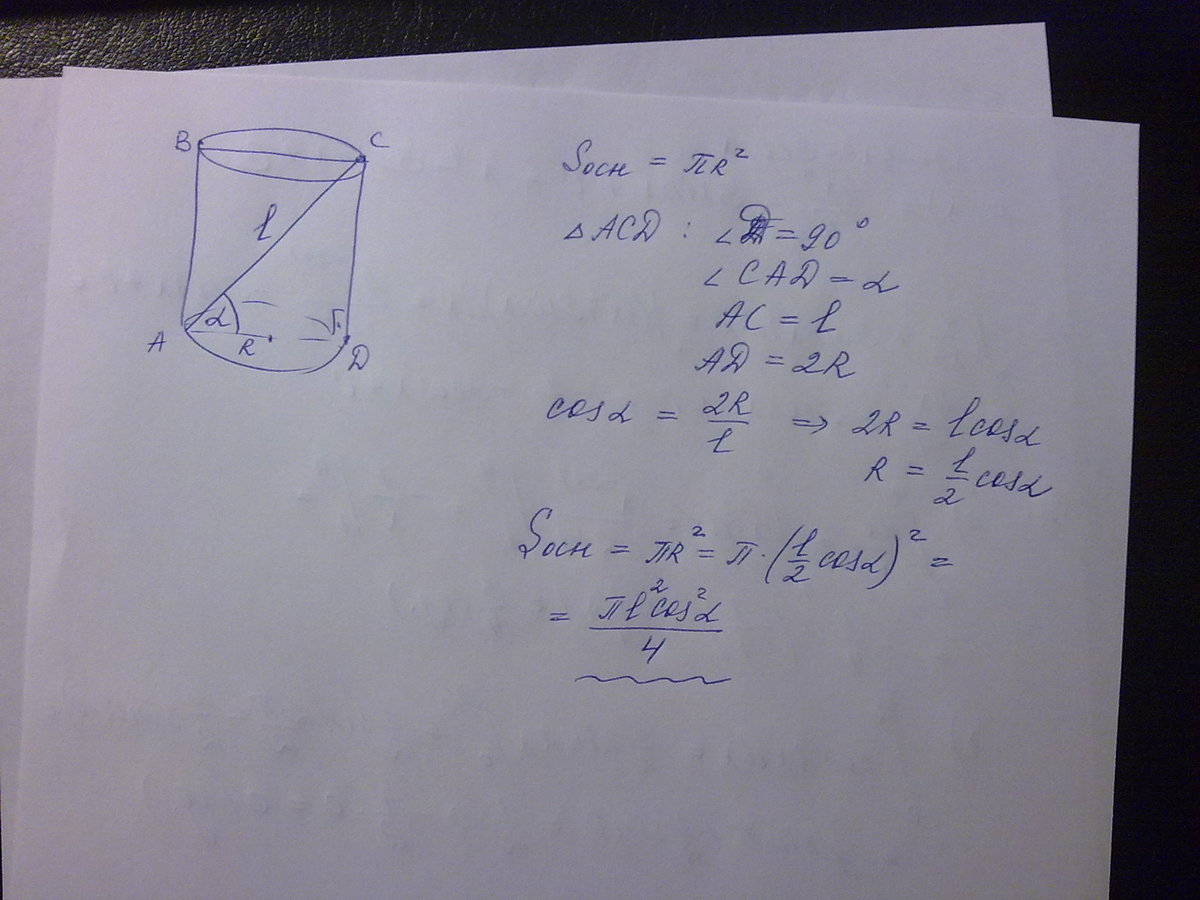 B C
l
A α R D
Sосн = πR²
△ACD : ∠D = 90°
∠CAD = α
AC = l
AD = 2R
cosα = 2R/l ⇒ 2R = l cosα
R = l/2 cosα
Sосн = πR² = π·(l/2 cosα)² =
= πl²cos²α/4